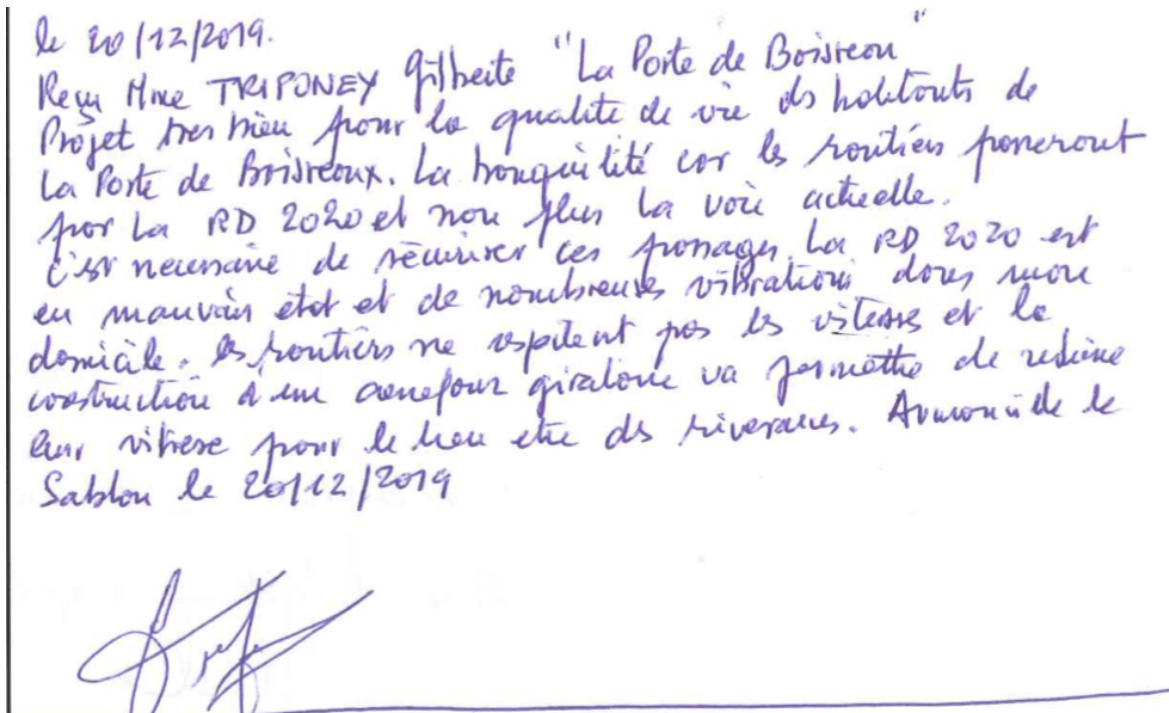 le 20/12/2019.
Reçu Mme TRIPONEY Gilberte "La Porte de Boisreau"
Projet tres bien pour la qualite de vie ds habitants de
La Porte de Boisreaux. La tranquilité car les routiers passeront
par La RD 2020 et non plus la voie actuelle.
C'est necessaire de sécuriser ces passages. La RD 2020 est
en mauvais état et de nombreuses vibrations dans mon
domicile. les routiers ne respectent pas les vitesses et la
construction d'un carrefour giratoire va permettre de reduire
leur vitesse pour le bien etre ds riverains.
Sablon le 20/12/2019